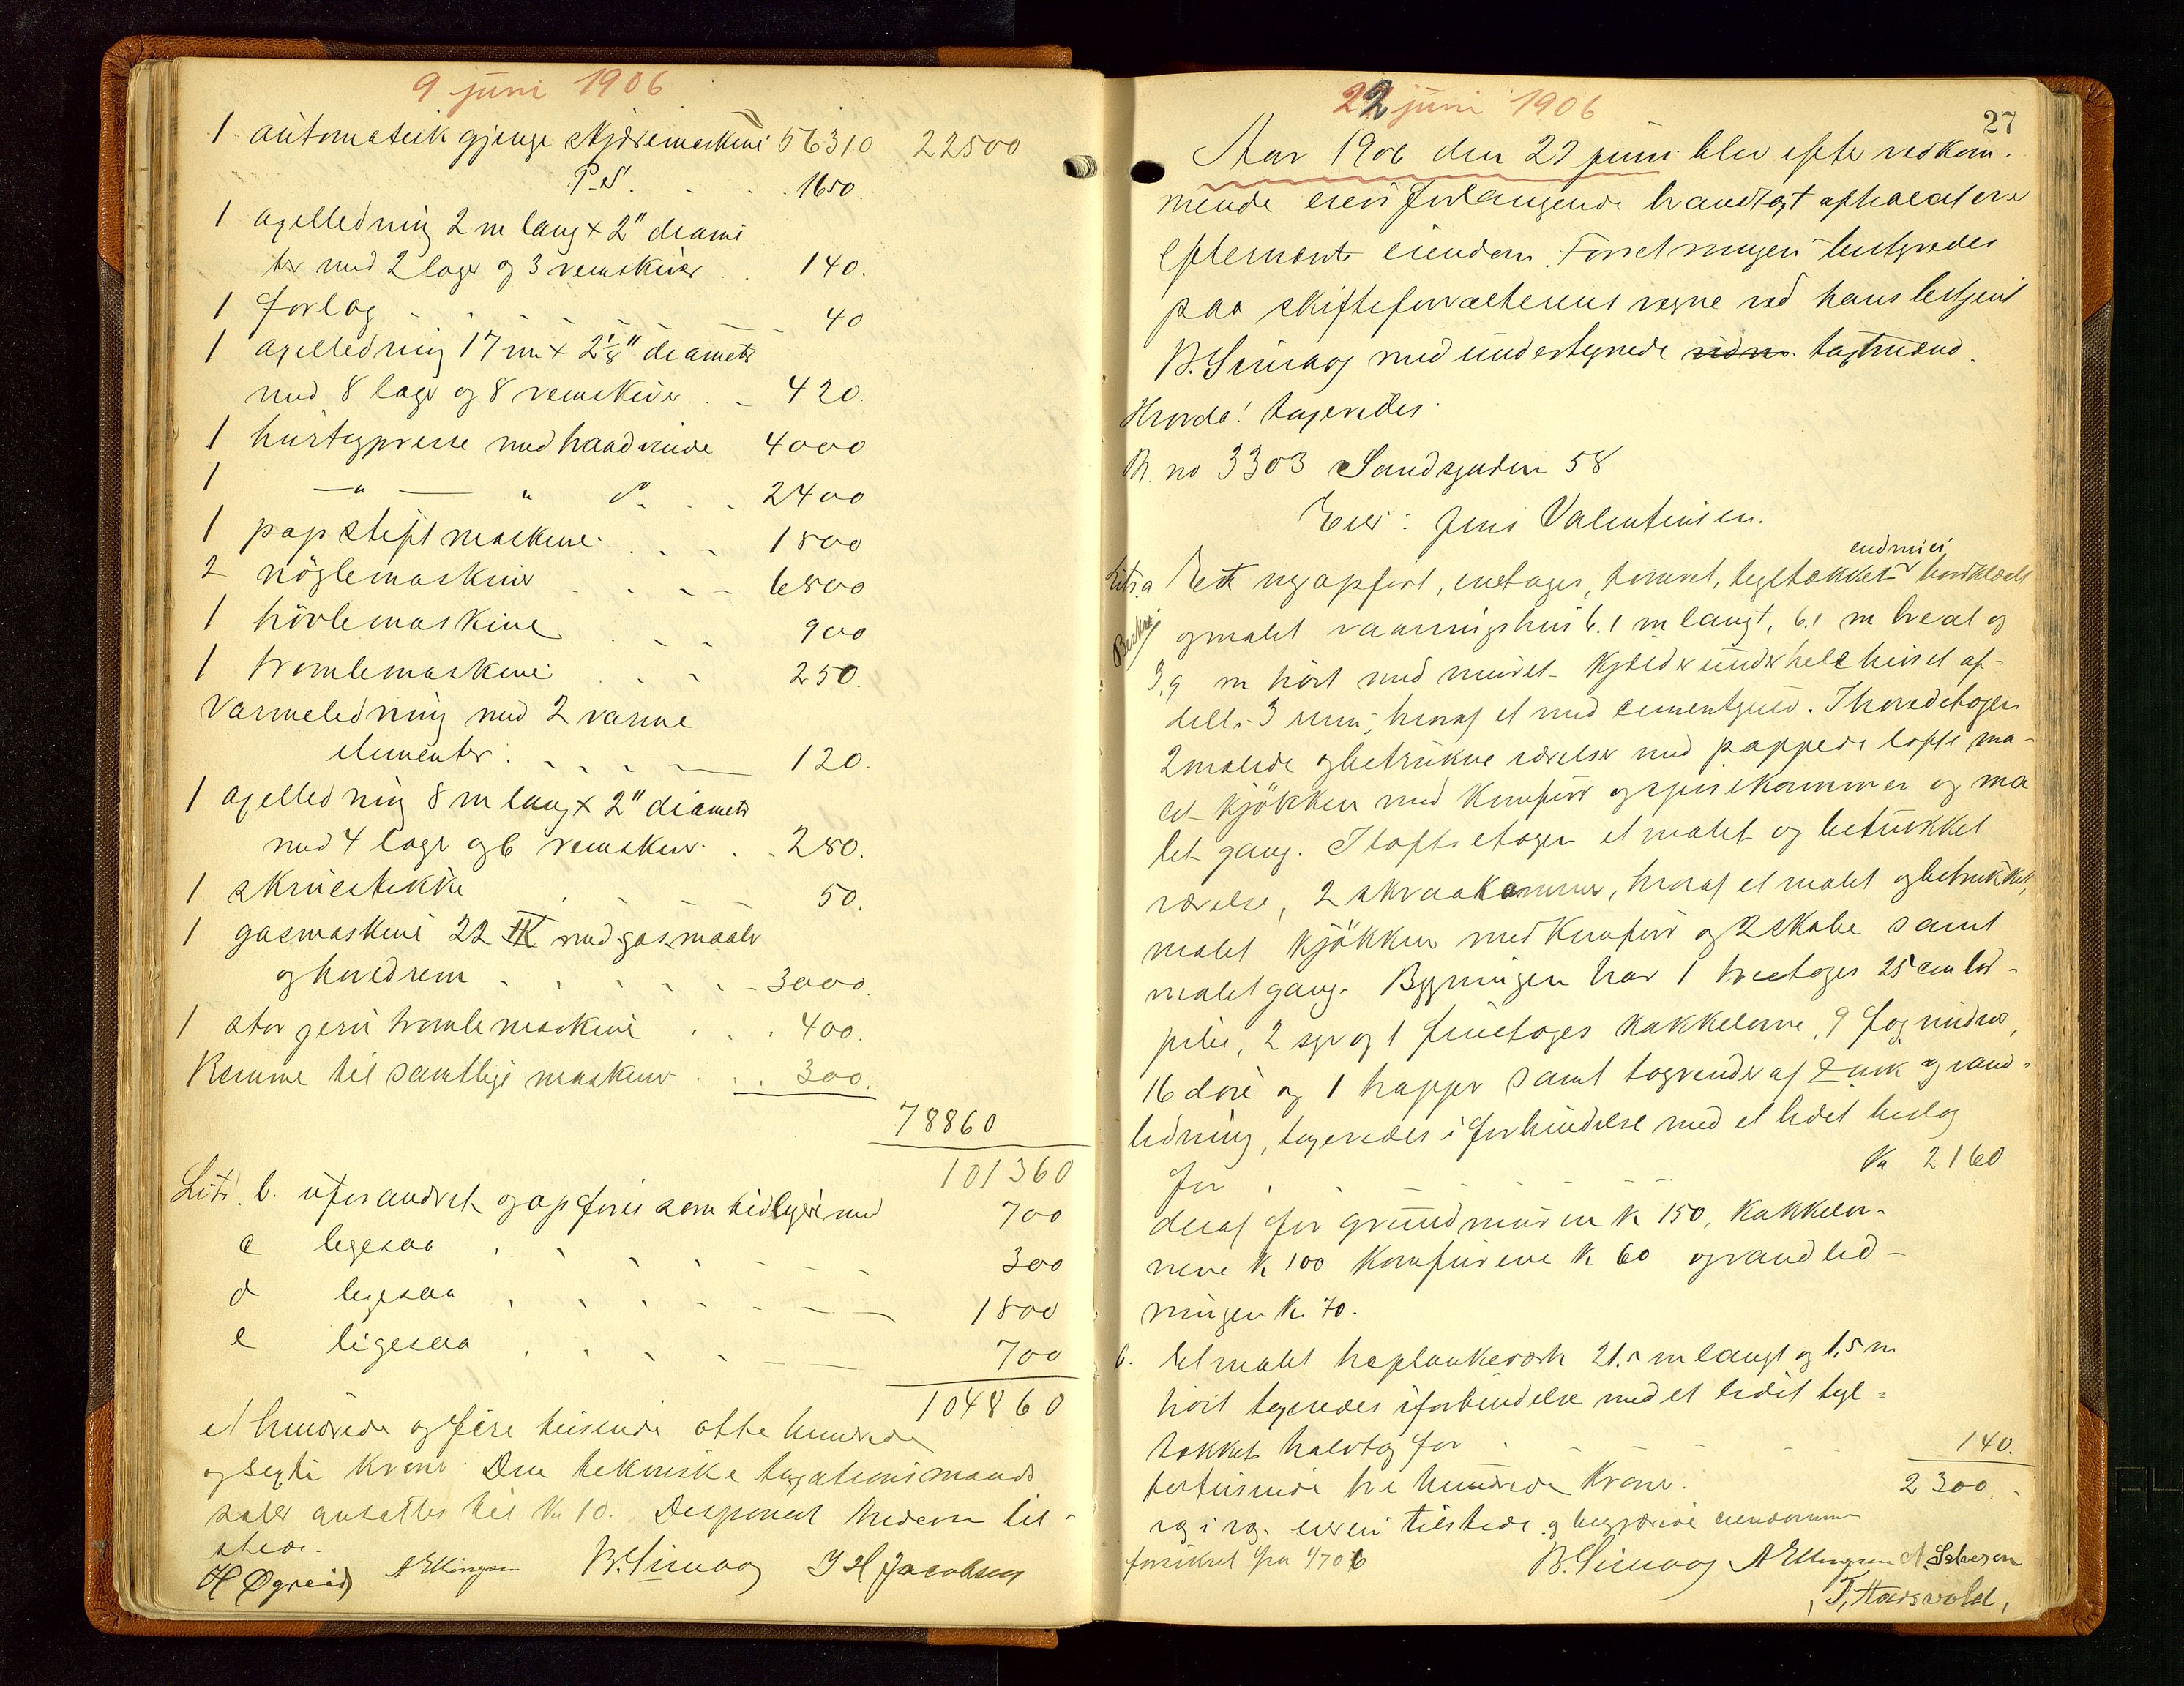 9 juni 1906
1 automatisk gjenge skjæremaskine 56310 22500
P.S. 1650.
1 axelledning 2 m lang x 2" diame
ter med 2 lager og 3 remskiver 140.
1 forlag 40
1 axelledning 17 m x 2 1/8" diameter
med 8 lager og 8 remskiver 420.
1 hurtigpresse med haandmide 4000
1 —"— " do 2400
1 papstiftmaskine 1800
2 nöglemaskiner 6800
1 hövlemaskine 900
1 tromlemaskine 250.
Varmeledning med 2 varme
elementer 120.
1 axelledning 8 m lang x 2" diameter
med 4 lager og 6 remskiver 280.
1 skruestikke 50.
1 gasmaskine 22 HK med gasmaaler
og hovedrem 3000.
1 stor jern tromlemaskine 400.
Remme til samtlige maskiner 300.
78860
101360
Litr. b. uforandret og opføres som tidligere med 700
c ligesaa 300
d ligesaa 1800
e ligesaa 700
104860
et hundrede og fire tusinde otte hundrede
og sexti kroner. Den tekniske taxationsmands
salær ansattes til Kr 10. Disponent Pedersen til-
stede.
H Øgreid A Ellingsen B. Simaog J H Jacobsen
22 juni 1906
27
Aar 1906 den 22 juni blev efter vedkom-
mende eiers forlangende brandtaxt afholdt over
efternævnte eiendom. Forretningen bestyredes
paa skifteforvalterens vegne ved hans betjent
B. Simaog med undertegnede taxtmænd.
Hvorda! taxeredes:
B. no 3303 Sandsgaden 58
Eier: Jens Valentinsen.
endnu ei
Litr. a Et nyopført, enetages, tømret, tegltækket bordklædt
Beskr.
og malet vaaningshus 6.1 m langt, 6.1 m bredt og
3,9 m höit med muret kjælder under hele huset af-
delt i 3 rum, hvoraf et med cementgulv. I hovedetagen
2 malede og betrukne værelser med pappede lofte, ma-
let kjökken med komfur og spisekammer og ma
let gang. I loftsetagen et malet og betrukket
værelse, 2 skraakammer, hvoraf et malet og betrukket,
malet kjökken med komfur og 2 skabe samt
malet gang. Bygningen har 1 treetages 25 cm lod-
pibe, 2 og 1 fireetages kakkelovne, 9 fag vinduer,
16 döre og 1 trapper samt tagrender af zink og vand-
ledning, taxeredes i forbindelse med et lidet bislag
for Kr 2160
deraf for grundmuren Kr 150, kakkelov-
nene Kr 100 komfurene Kr 60 og vandled-
ningen Kr. 70.
b. Et malet træplankeværk 21.5 m langt og 1,5 m
höit taxeredes i forbindelse med et lidet tegl-
tækket halvtag for 140.
totusinde tre hundrede Kroner. 2300.
eieren tilstede og begjærede eiendommen
forsikret fra 1/7 06
B. Simaog A Ellingsen
T. Haarsvold.